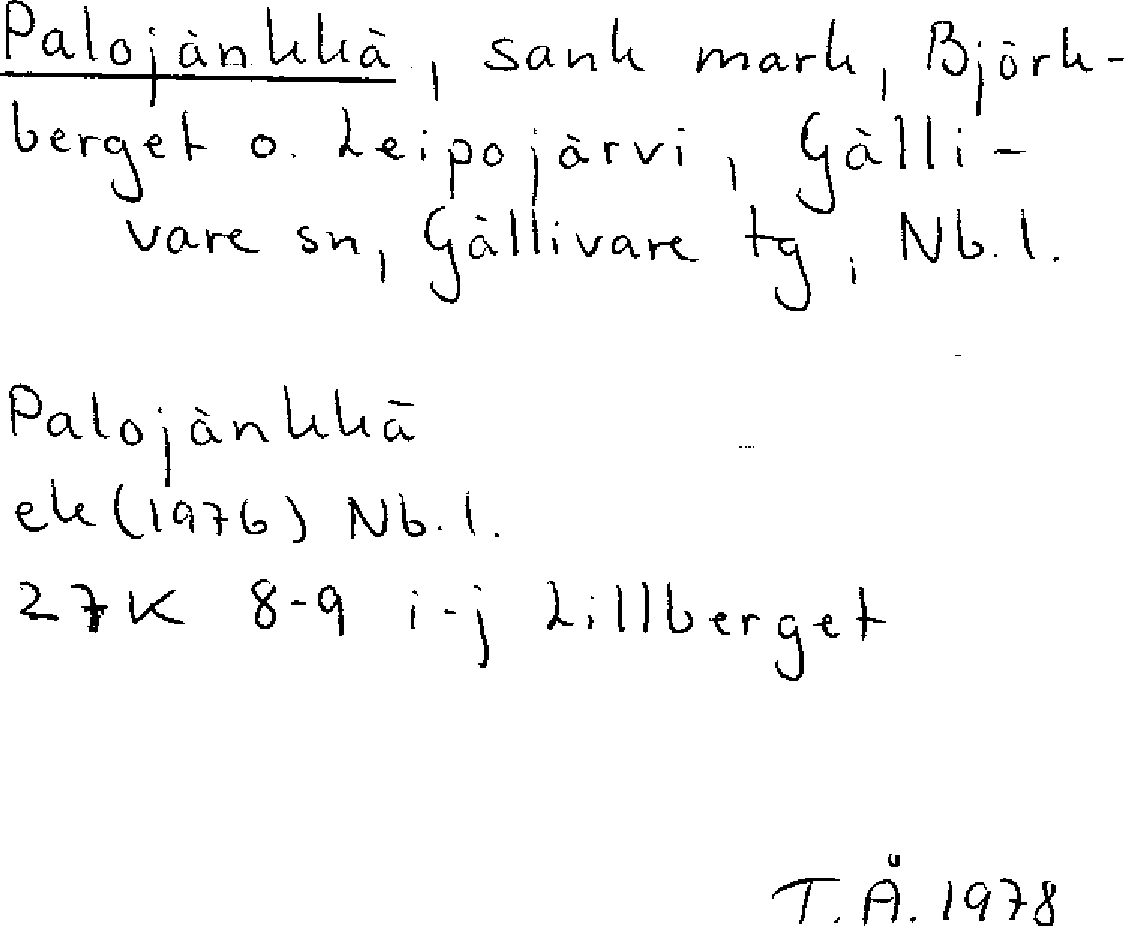 Palojänkkä, sank mark, Björk-
berget o. Leipojärvi, Gälli-
vare sn, Gällivare tg, Nb. l.
Palojänkkä
ek (1976) Nb. l.
27K 8-9 i-j Lillberget
T. Å. 1978